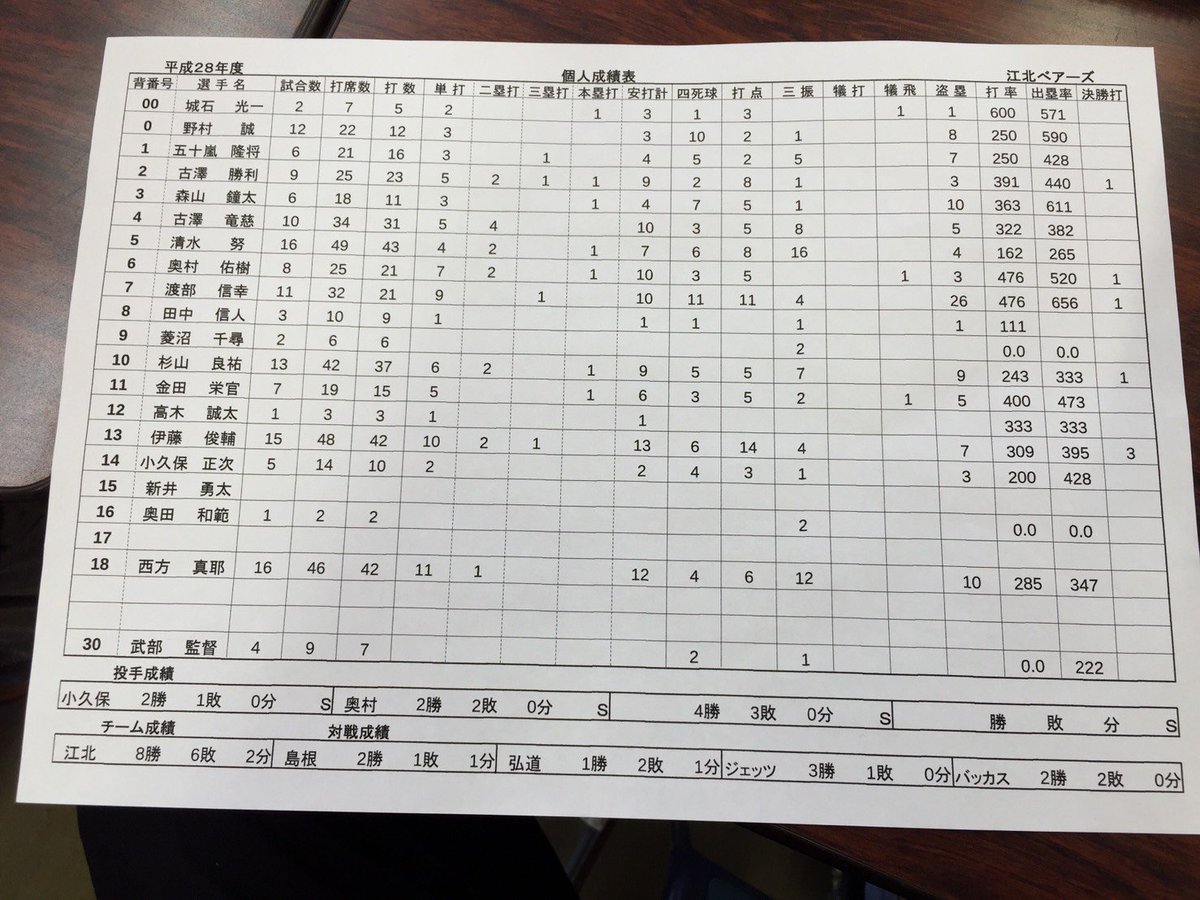 平成28年度 個人成績表 江北ベアーズ
背番号 選手名 試合数 打席数 打数 単打 二塁打 三塁打 本塁打 安打計 四死球 打点 三振 犠打 犠飛 盗塁 打率 出塁率 決勝打
00 城石 光一 2 7 5 2 1 3 1 3 1 1 600 571
0 野村 誠 12 22 12 3 3 10 2 1 8 250 590
1 五十嵐 隆将 6 21 16 3 1 4 5 2 5 7 250 428
2 古澤 勝利 9 25 23 5 2 1 1 9 2 8 1 3 391 440 1
3 森山 鐘太 6 18 11 3 1 4 7 5 1 10 363 611
4 古澤 竜慈 10 34 31 5 4 10 3 5 8 5 322 382
5 清水 努 16 49 43 4 2 1 7 6 8 16 4 162 265
6 奥村 佑樹 8 25 21 7 2 1 10 3 5 1 3 476 520 1
7 渡部 信幸 11 32 21 9 1 10 11 11 4 26 476 656 1
8 田中 信人 3 10 9 1 1 1 1 1 111
9 菱沼 千尋 2 6 6 2 0.0 0.0
10 杉山 良祐 13 42 37 6 2 1 9 5 5 7 9 243 333 1
11 金田 栄官 7 19 15 5 1 6 3 5 2 1 5 400 473
12 高木 誠太 1 3 3 1 1 333 333
13 伊藤 俊輔 15 48 42 10 2 1 13 6 14 4 7 309 395 3
14 小久保 正次 5 14 10 2 2 4 3 1 3 200 428
15 新井 勇太
16 奥田 和範 1 2 2 2 0.0 0.0
17
18 西方 真耶 16 46 42 11 1 12 4 6 12 10 285 347
30 武部 監督 4 9 7 2 1 0.0 222
投手成績
小久保 2勝 1敗 0分 S 奥村 2勝 2敗 0分 S 4勝 3敗 0分 S 勝 敗 分 S
チーム成績 対戦成績
江北 8勝 6敗 2分 島根 2勝 1敗 1分 弘道 1勝 2敗 1分 ジェッツ 3勝 1敗 0分 バッカス 2勝 2敗 0分